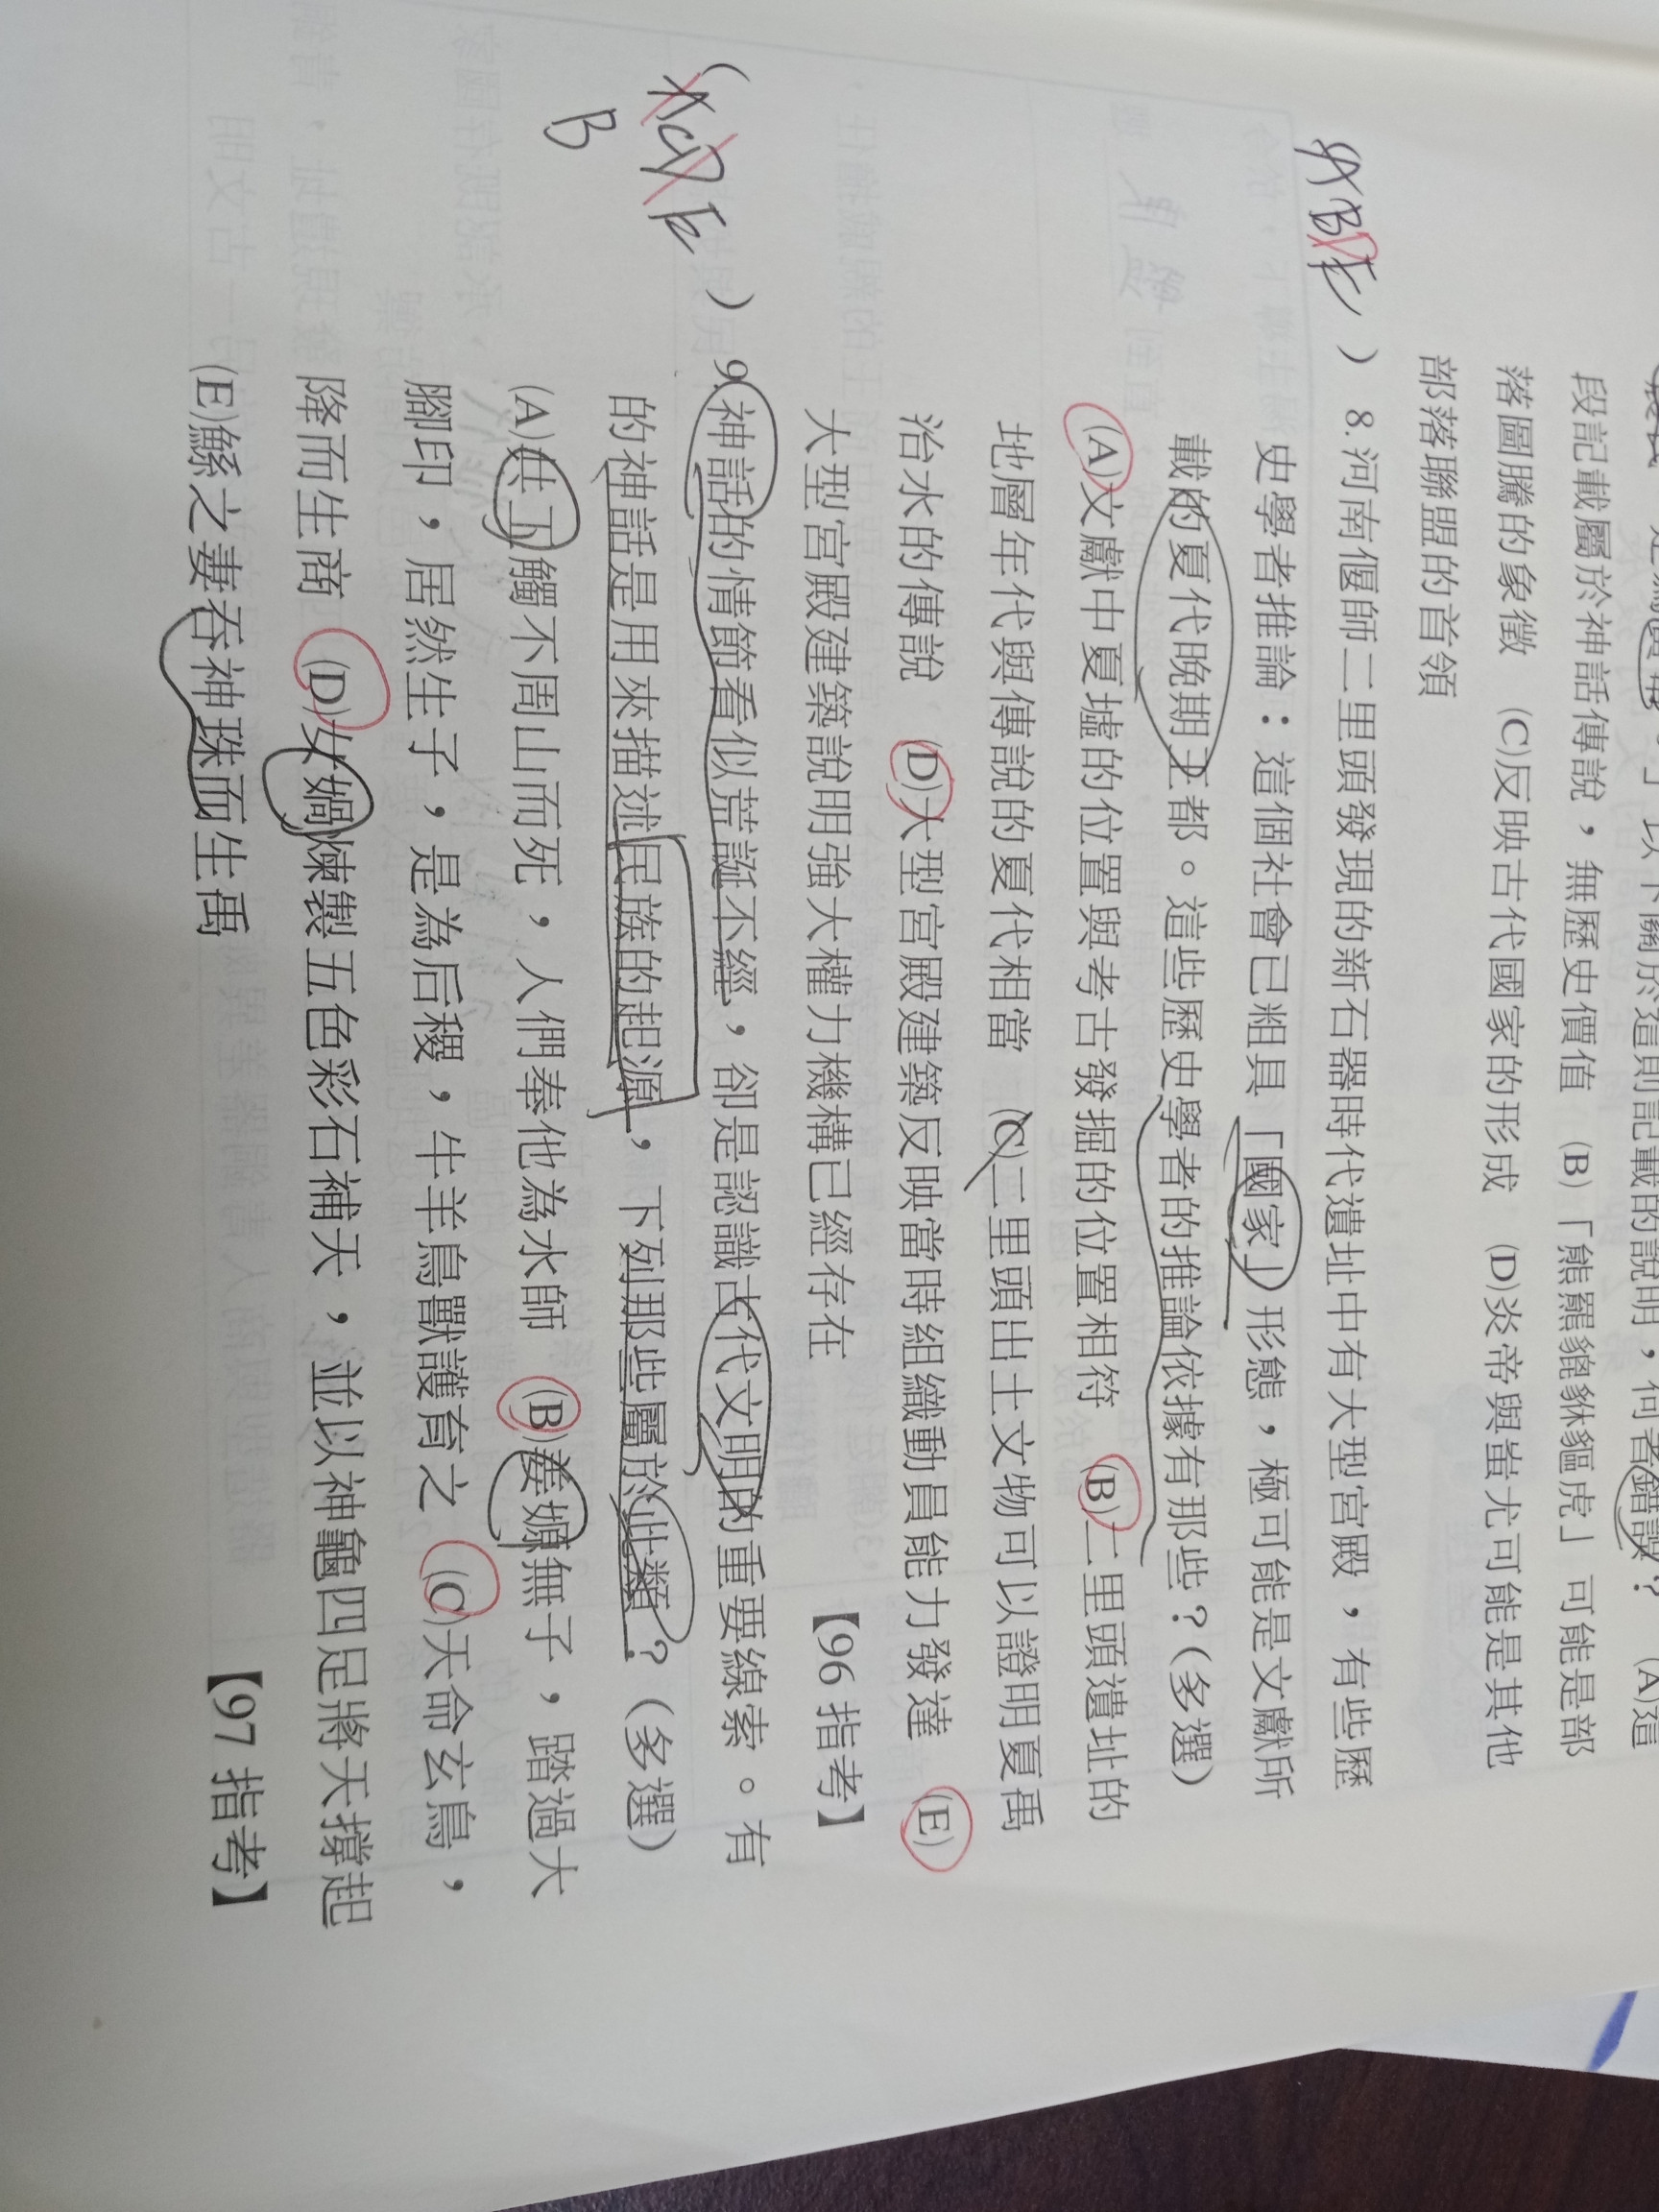 段記載屬於神話傳說，無歷史價值 (B)「熊羆貔貅貙虎」可能是部
落圖騰的象徵 (C)反映古代國家的形成 (D)炎帝與蚩尤可能是其他
部落聯盟的首領
) 8.河南偃師二里頭發現的新石器時代遺址中有大型宮殿，有些歷
史學者推論：這個社會已粗具「國家」形態，極可能是文獻所
載的夏代晚期王都。這些歷史學者的推論依據有那些？(多選)
(A)文獻中夏墟的位置與考古發掘的位置相符 (B)二里頭遺址的
地層年代與傳說的夏代相當 (C)二里頭出土文物可以證明夏禹
治水的傳說 (D)大型宮殿建築反映當時組織動員能力發達 (E)
大型宮殿建築說明強大權力機構已經存在 【96 指考】
( B ) 9.神話的情節看似荒誕不經，卻是認識古代文明的重要線索。有
的神話是用來描述民族的起源，下列那些屬於此類？(多選)
(A)共工觸不周山而死，人們奉他為水師 (B)姜嫄無子，踏過大
腳印，居然生子，是為后稷，牛羊鳥獸護育之 (C)天命玄鳥，
降而生商 (D)女媧煉製五色彩石補天，並以神龜四足將天撐起
(E)鯀之妻吞神珠而生禹 【97 指考】